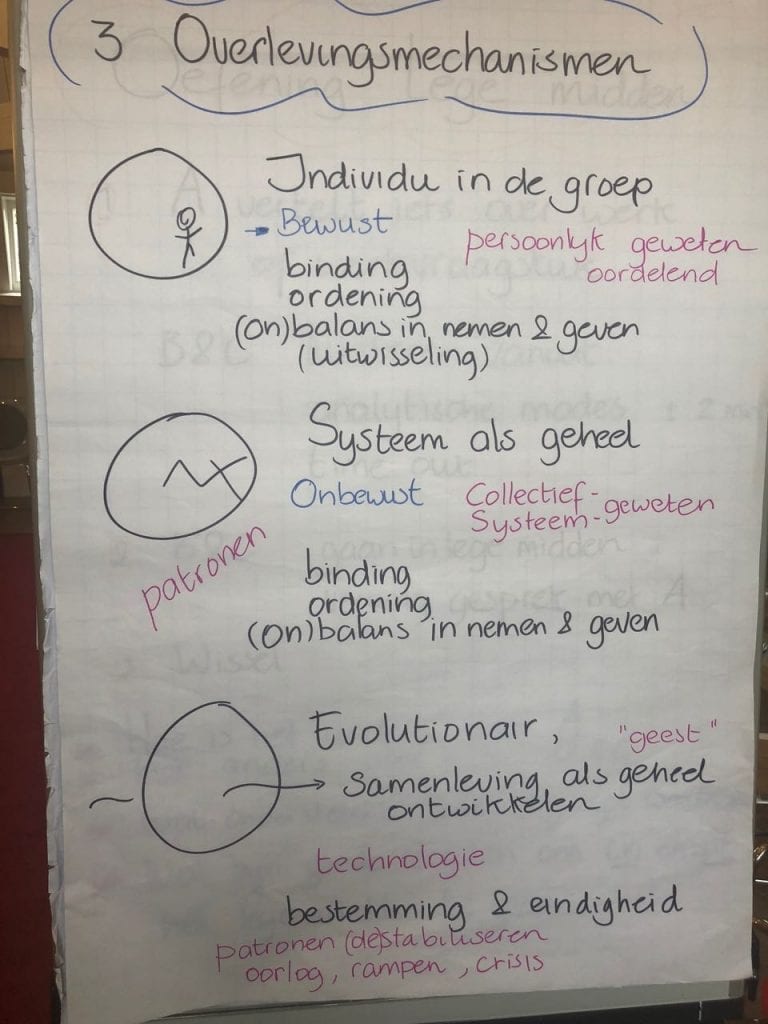 3 Overlevingsmechanismen
Individu in de groep
Bewust
persoonlijk geweten
oordelend
binding
ordening
(on)balans in nemen & geven
(uitwisseling)
Systeem als geheel
Onbewust
Collectief-
Systeem-geweten
patronen
binding
ordening
(on)balans in nemen & geven
Evolutionair, "geest"
Samenleving als geheel
ontwikkelen
technologie
bestemming & eindigheid
patronen (de)stabiliseren
oorlog, rampen, crisis